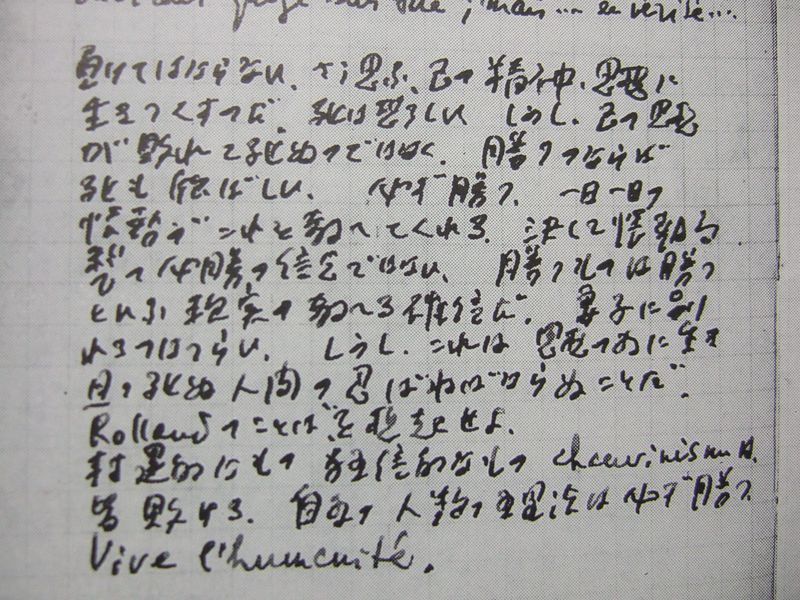 mais... en vérité...
負けてはならない、さう思ふ、己の精神、思想に
生きつくすのだ。死は恐ろしい しかし、己の思想
が敗れて死ぬのではなく、勝つのならば
死も悦ばしい。 必ず勝つ。 一日一日の
情勢がこれを教へてくれる。決して情勢
の必勝の信念ではない。 勝つものは勝つ
といふ現実の教へる確信だ。 妻子に別
れるのはつらい。 しかし、これは思想のために生き
且つ死ぬ人間の忍ばねばならぬことだ。
Rollandのことばを想起せよ。
封建的なもの 狂信的なもの chauvinismは、
皆敗ける。 自然の人類の理法は必ず勝つ
Vive l'humanité.